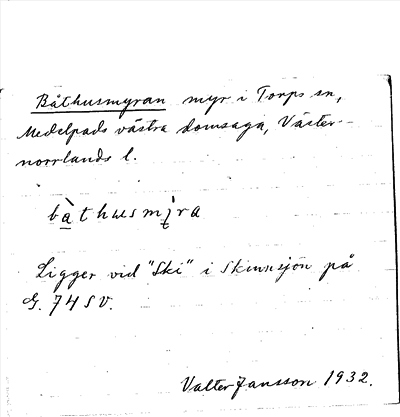 Båthusmyran myr i Torps sn,
Medelpads västra domsaga, Väster-
norrlands l.
bàthusmira
Ligger vid "Ski" i Skinnsjön på
G. 74 SV.
Valter Jansson 1932.